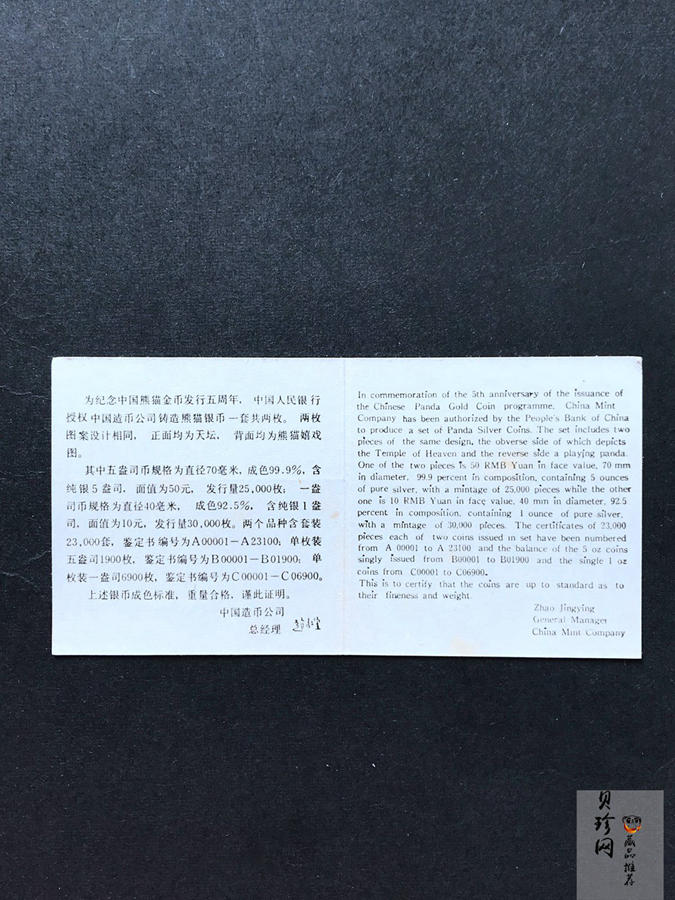 为纪念中国熊猫金币发行五周年，中国人民银行
授权中国造币公司铸造熊猫银币一套共两枚。两枚
图案设计相同，正面均为天坛，背面均为熊猫嬉戏
图。
其中五盎司币规格为直径70毫米，成色99.9%，含
纯银5盎司，面值为50元，发行量25,000枚；一盎
司币规格为直径40毫米，成色92.5%，含纯银1盎
司，面值为10元，发行量30,000枚。两个品种含套装
23,000套，鉴定书编号为A00001-A23100；单枚装
五盎司1900枚，鉴定书编号为B00001-B01900；单
枚装一盎司6900枚，鉴定书编号为C00001-C06900。
上述银币成色标准，重量合格，谨此证明。
中国造币公司
总经理
In commemoration of the 5th anniversary of the issuance of
the Chinese Panda Gold Coin programme, China Mint
Company has been authorized by the People's Bank of China
to produce a set of Panda Silver Coins. The set includes two
pieces of the same design, the obverse side of which depicts
the Temple of Heaven and the reverse side a playing panda.
One of the two pieces is 50 RMB Yuan in face value, 70 mm
in diameter, 99.9 percent in composition, containing 5 ounces
of pure silver, with a mintage of 25,000 pieces while the other
one is 10 RMB Yuan in face value, 40 mm in diameter, 92.5
percent in composition, containing 1 ounce of pure silver,
with a mintage of 30,000 pieces. The certificates of 23,000
pieces each of two coins issued in set have been numbered
from A 00001 to A 23100 and the balance of the 5 oz coins
singly issued from B00001 to B01900 and the single 1 oz
coins from C00001 to C06900.
This is to certify that the coins are up to standard as to
their fineness and weight.
Zhao Jingying
General Manager
China Mint Company
贝珍网
藏品推荐